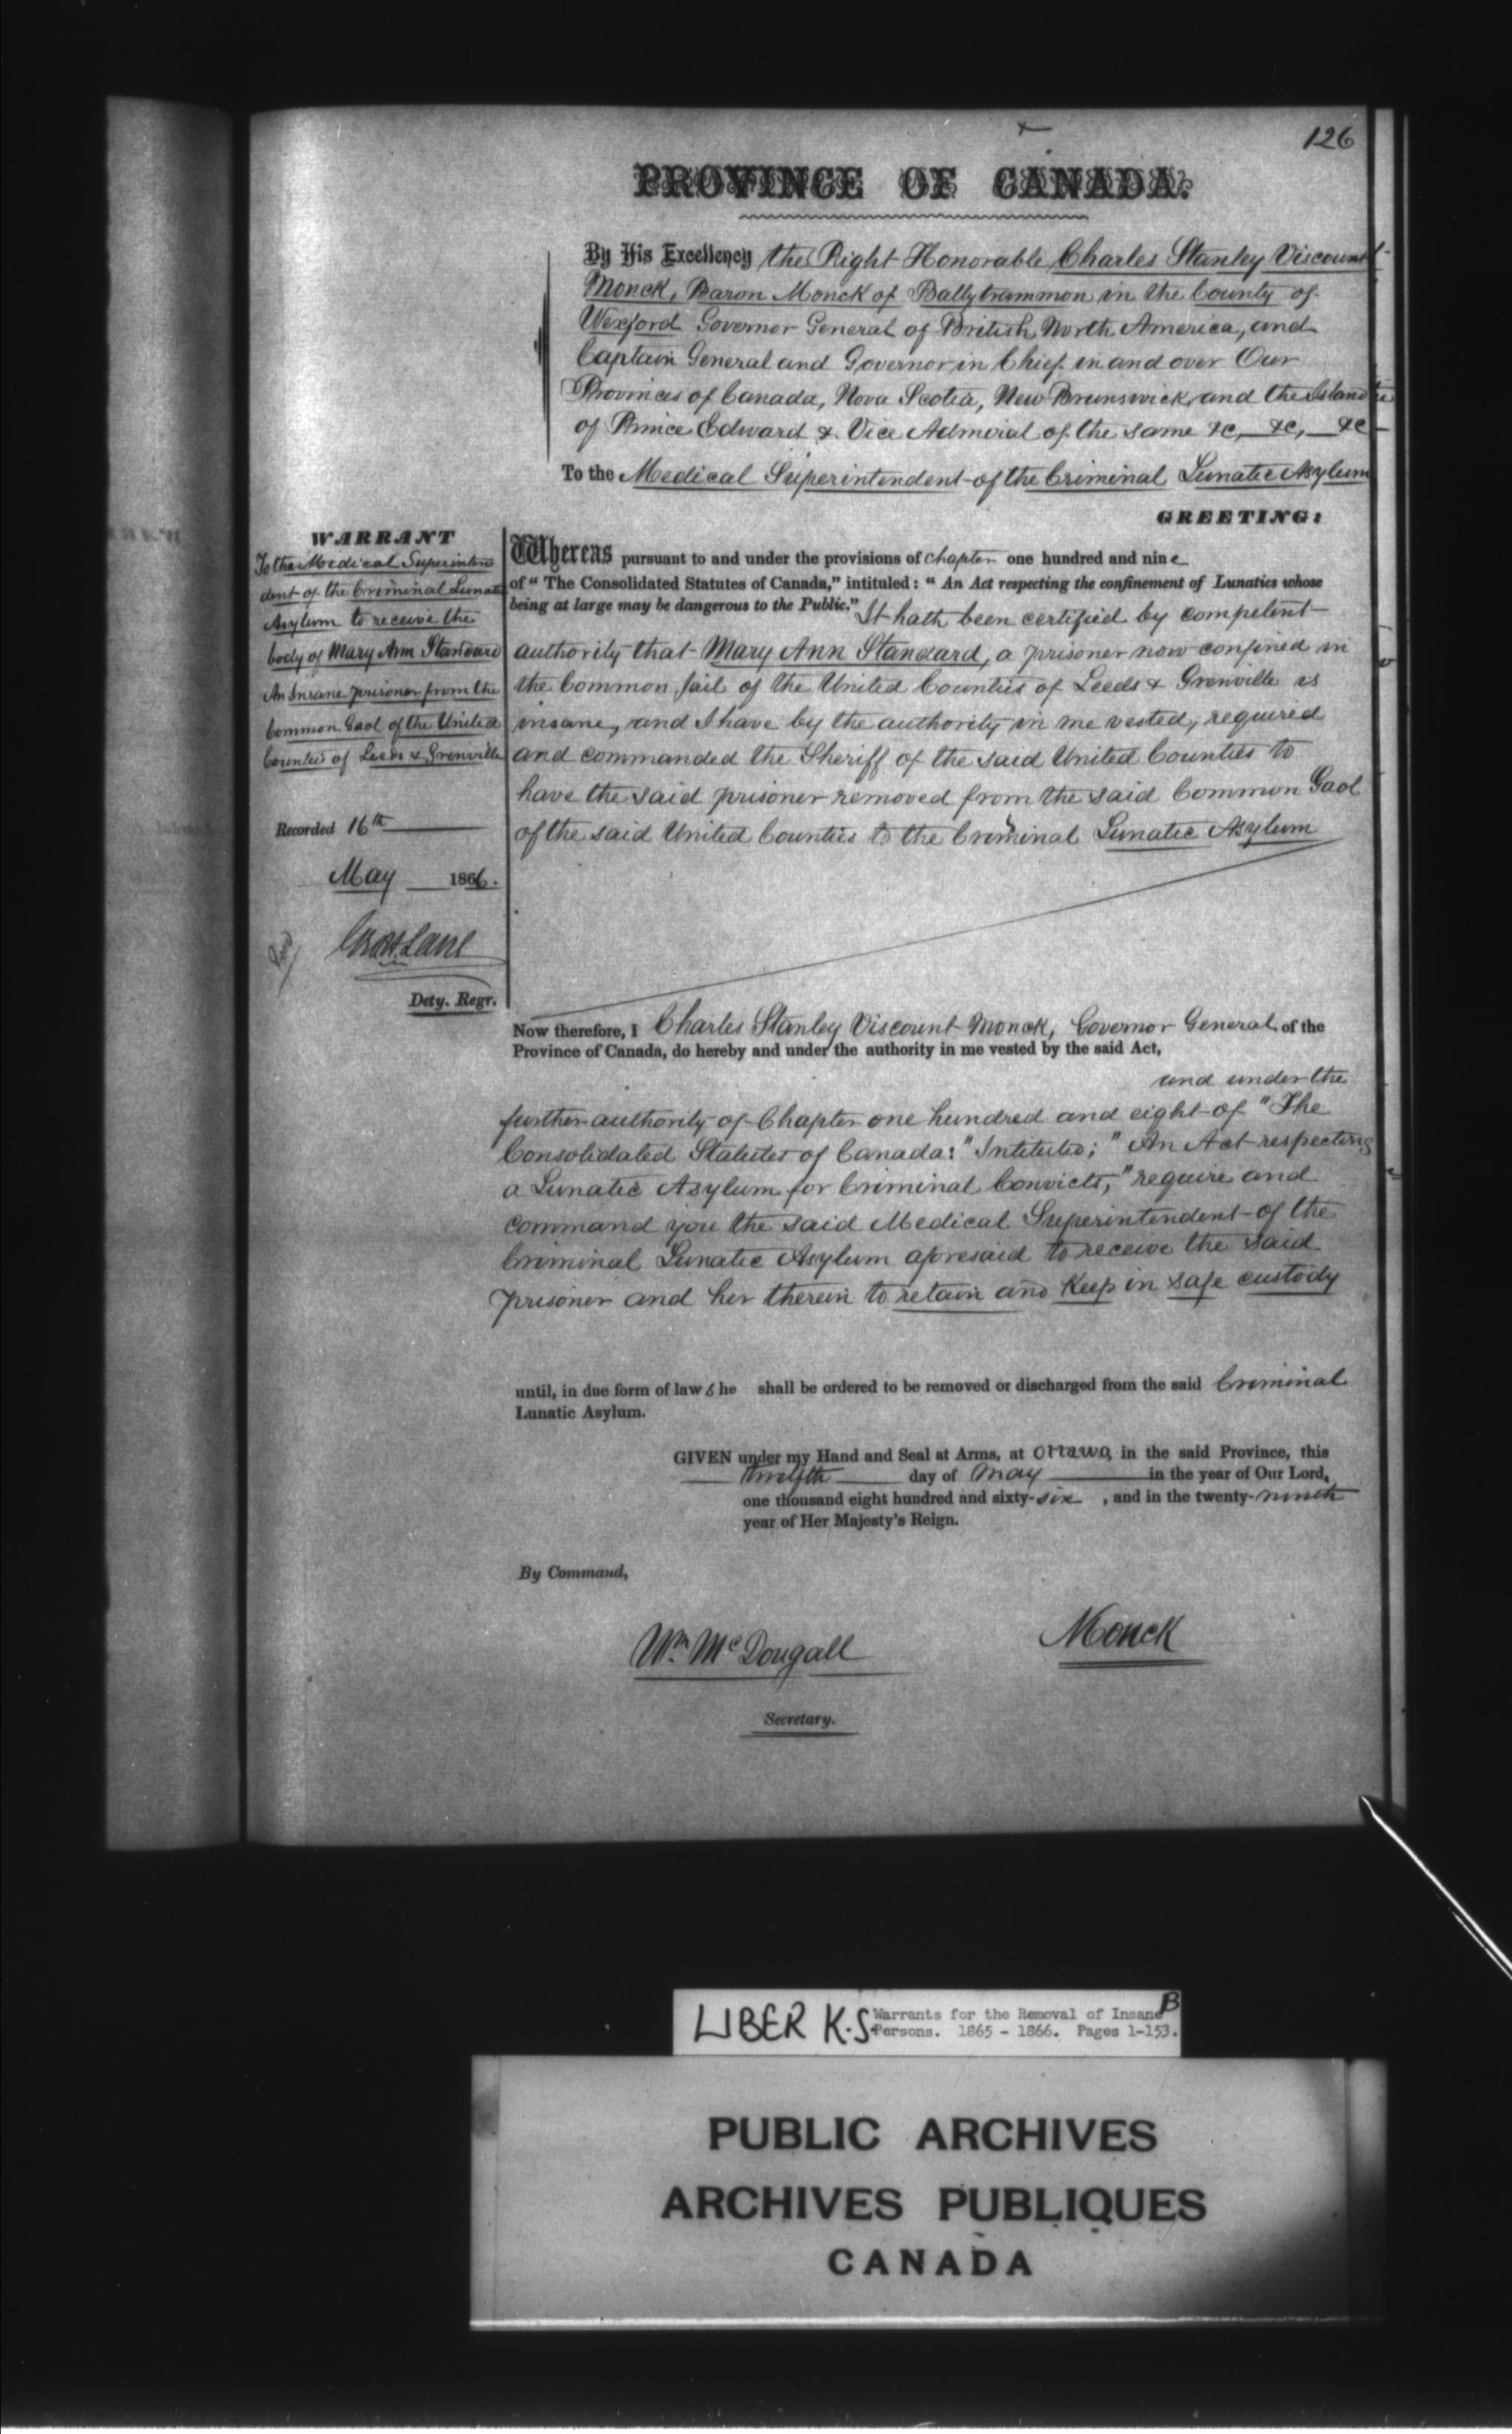 126
PROVINCE OF CANADA.
By His Excellency the Right Honorable Charles Stanley Viscount
Monck, Baron Monck of Ballytrammon in the County of
Wexford Governor General of British North America, and
Captain General and Governor in Chief in and over Our
Provinces of Canada, Nova Scotia, New Brunswick, and the Island
of Prince Edward & Vice Admiral of the same &c, &c, &c
To the Medical Superintendent of the Criminal Lunatic Asylum
GREETING:
WARRANT
To the Medical Superinten
dent of the Criminal Lunatic
Asylum to receive the
body of Mary Ann Standard
An Insane prisoner from the
Common Gaol of the United
Counties of Leeds & Grenville
Recorded 16th
May 1866.
Dety. Regr.
Whereas pursuant to and under the provisions of chapter one hundred and nine
of "The Consolidated Statutes of Canada," intituled: "An Act respecting the confinement of Lunatics whose
being at large may be dangerous to the Public." It hath been certified by competent
authority that Mary Ann Standard, a prisoner now confined in
the Common Jail of the United Counties of Leeds & Grenville is
insane, and I have by the authority in me vested, required
and commanded the Sheriff of the said United Counties to
have the said prisoner removed from the said Common Gaol
of the said United Counties to the Criminal Lunatic Asylum
Now therefore, I Charles Stanley Viscount Monck, Governor General of the
Province of Canada, do hereby and under the authority in me vested by the said Act,
and under the
further authority of Chapter one hundred and eight of "The
Consolidated Statutes of Canada:" Intituled; "An Act respecting
a Lunatic Asylum for Criminal Convicts," require and
command you the said Medical Superintendent of the
Criminal Lunatic Asylum aforesaid to receive the said
prisoner and her therein to retain and Keep in safe custody
until, in due form of law she shall be ordered to be removed or discharged from the said Criminal
Lunatic Asylum.
GIVEN under my Hand and Seal at Arms, at Ottawa, in the said Province, this
twelfth day of May in the year of Our Lord,
one thousand eight hundred and sixty-six, and in the twenty-ninth
year of Her Majesty's Reign.
By Command,
Wm. McDougall
Monck
Secretary.
LIBER K.S. Warrants for the Removal of Insane B
Persons. 1865 - 1866. Pages 1-153.
PUBLIC ARCHIVES
ARCHIVES PUBLIQUES
CANADA